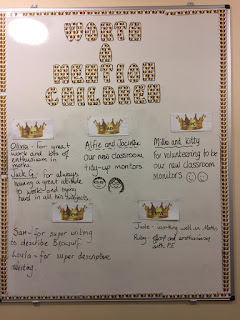 WORTH
A
MENTION
CHILDREN
Olivia - for great
work and lots of
enthusiasm in
maths.
Jack G. for always
having a great attitude
to work and trying
hard in all his subjects
Alfie and Jacinta
Our new classroom
tidy-up monitors
Millie and Kitty
for volunteering to be
our new classroom
monitors
Sam - for super writing
to describe Beowulf.
Layla - for super descriptive
writing.
Jude - working well in Maths
Ruby - effort and enthusiasm
with PE